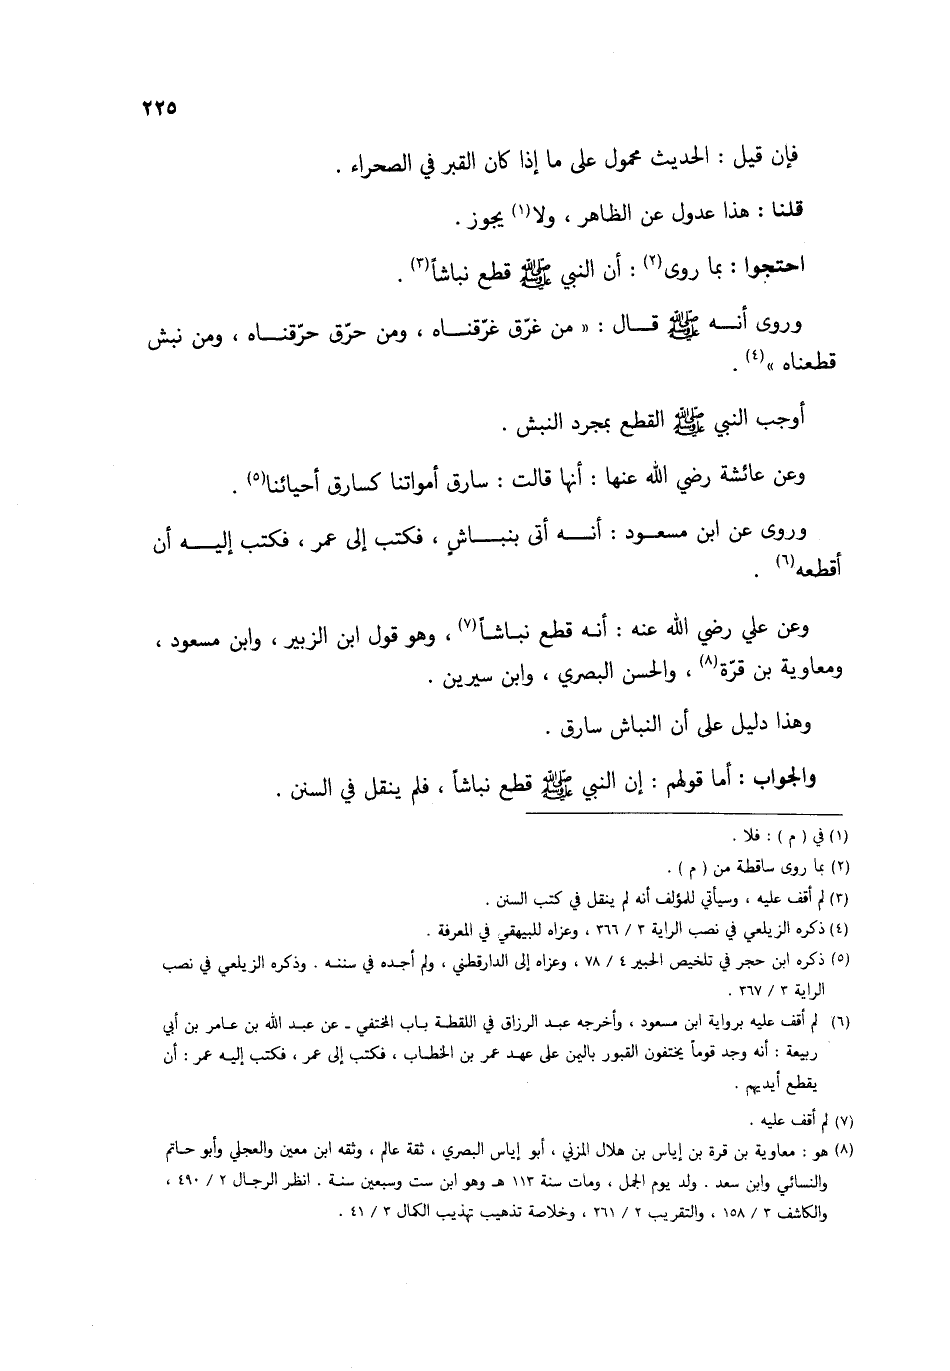 ٢٢٥
فإن قيل : الحديث محمول على ما إذا كان القبر في الصحراء .
قلنا : هذا عدول عن الظاهر ، ولا(١) يجوز .
احتجوا : بما روى(٢) : أن النبي ﷺ قطع نباشاً(٣) .
وروى أنـــه ﷺ قـــال : « من غرّق غرّقنـــاه ، ومن حرّق حرّقنـــاه ، ومن نبش
قطعناه »(٤) .
أوجب النبي ﷺ القطع بمجرد النبش .
وعن عائشة رضي الله عنها : أنها قالت : سارق أمواتنا كسارق أحيائنا(٥) .
وروى عن ابن مسعـود : أنـــه أتى بنبـــاشٍ ، فكتب إلى عمر ، فكتب إليـــه أن
أقطعه(٦) .
وعن علي رضي الله عنه : أنـه قطع نبـاشـاً(٧) ، وهو قول ابن الزبير ، وابن مسعود ،
ومعاوية بن قرّة(٨) ، والحسن البصري ، وابن سيرين .
وهذا دليل على أن النباش سارق .
والجواب : أما قولهم : إن النبي ﷺ قطع نباشاً ، فلم ينقل في السنن .
(١) في ( م ) : فلا .
(٢) بما روى ساقطة من ( م ) .
(٣) لم أقف عليه ، وسيأتي للمؤلف أنه لم ينقل في كتب السنن .
(٤) ذكره الزيلعي في نصب الراية ٣ / ٣٦٦ ، وعزاه للبيهقي في المعرفة .
(٥) ذكره ابن حجر في تلخيص الحبير ٤ / ٧٨ ، وعزاه إلى الدارقطني ، ولم أجـده في سننـه . وذكره الزيلعي في نصب
الراية ٣ / ٣٦٧ .
(٦) لم أقف عليه برواية ابن مسعود ، وأخرجه عبـد الرزاق في اللقطـة بـاب المختفي ـ عن عبـد الله بن عـامر بن أبي
ربيعة : أنه وجد قوماً يختفون القبور باليمن على عهـد عمر بن الخطـاب ، فكتب إلى عمر ، فكتب إليـه عمر : أن
يقطع أيديهم .
(٧) لم أقف عليه .
(٨) هو : معاوية بن قرة بن إياس بن هلال المزني ، أبو إياس البصري ، ثقة عالم ، وثقه ابن معين والعجلي وأبو حـاتم
والنسائي وابن سعد . ولد يوم الجمل ، ومات سنة ١١٣ هـ وهو ابن ست وسبعين سنـة . انظر الرجـال ٢ / ٤٩٠ ،
والكاشف ٣ / ١٥٨ ، والتقريب ٢ / ٢٦١ ، وخلاصة تذهيب تهذيب الكمال ٣ / ٤١ .